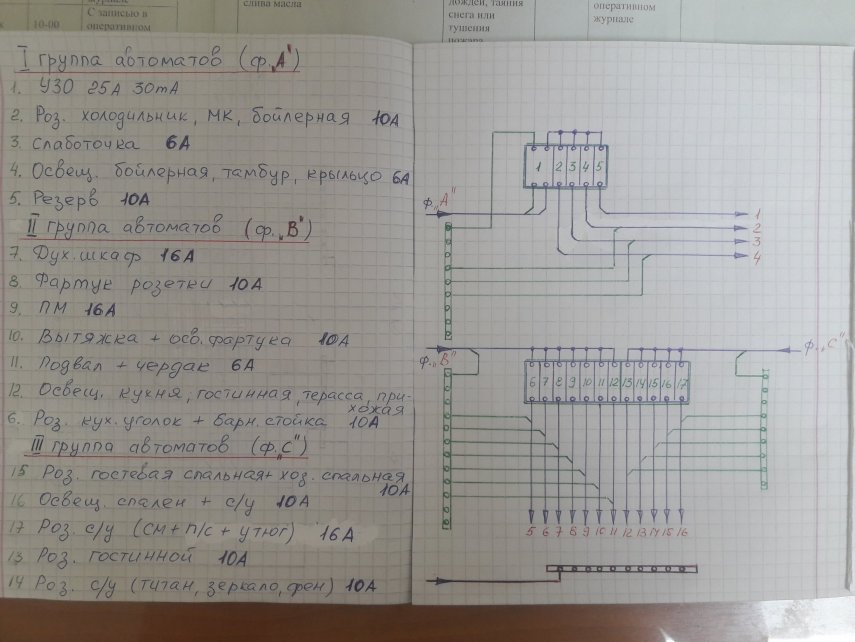 10-00
журнале
С записью в
оперативном
слива масла
дождей, таяния
снега или
тушения
пожара
оперативном
журнале
I группа автоматов (ф. „А“)
1. УЗО 25А 30mA
2. Роз. холодильник, МК, бойлерная 10А
3. Слаботочка 6А
4. Освещ. бойлерная, тамбур, крыльцо 6А
5. Резерв 10А
II группа автоматов (ф. „В“)
7. Дух. шкаф 16А
8. Фартук розетки 10А
9. ПМ 16А
10. Вытяжка + осв. фартука 10А
11. Подвал + чердак 6А
12. Освещ. кухня, гостинная, терасса, при-
хожая
6. Роз. кух. уголок + барн. стойка 10А
III группа автоматов (ф. „С“)
15 Роз. гостевая спальная + хоз. спальная
10А
16 Освещ. спален + с/у 10А
17 Роз. с/у (СМ + п/с + утюг) 16А
13 Роз. гостинной 10А
14 Роз. с/у (титан, зеркало, фен) 10А
1 2 3 4 5
ф. „А“
1
2
3
4
ф. „В“
ф. „С“
6 7 8 9 10 11 12 13 14 15 16 17
5 6 7 8 9 10 11 12 13 14 15 16